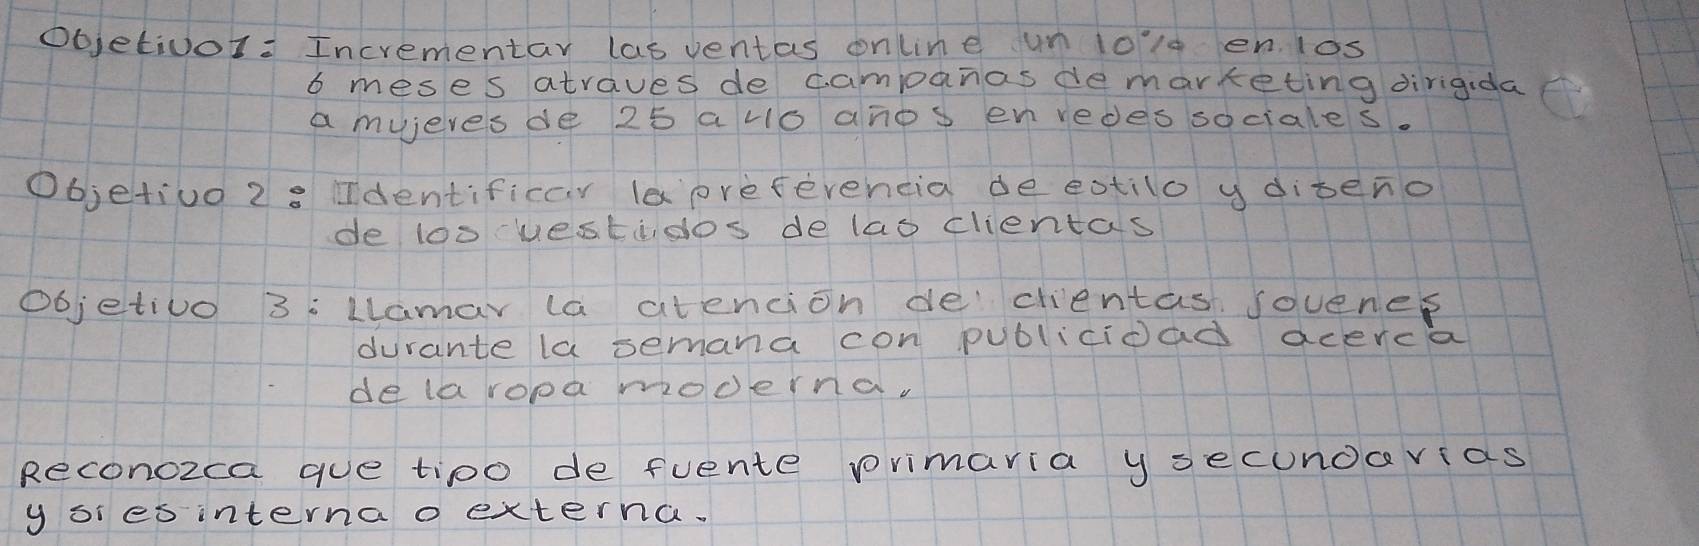 Objetivo1: Incrementar las ventas online un 10% en los
6 meses atraves de campañas de marketing dirigida
a mujeres de 25 a 40 años en redes sociales.
Objetivo 2: Identificar la preferencia de estilo y diseño
de los vestidos de las clientas
Objetivo 3: Llamar la atención de clientas jovenes
durante la semana con publicidad acerca
de la ropa moderna.
Reconozca que tipo de fuente primaria y secundarias
y si es interna o externa.